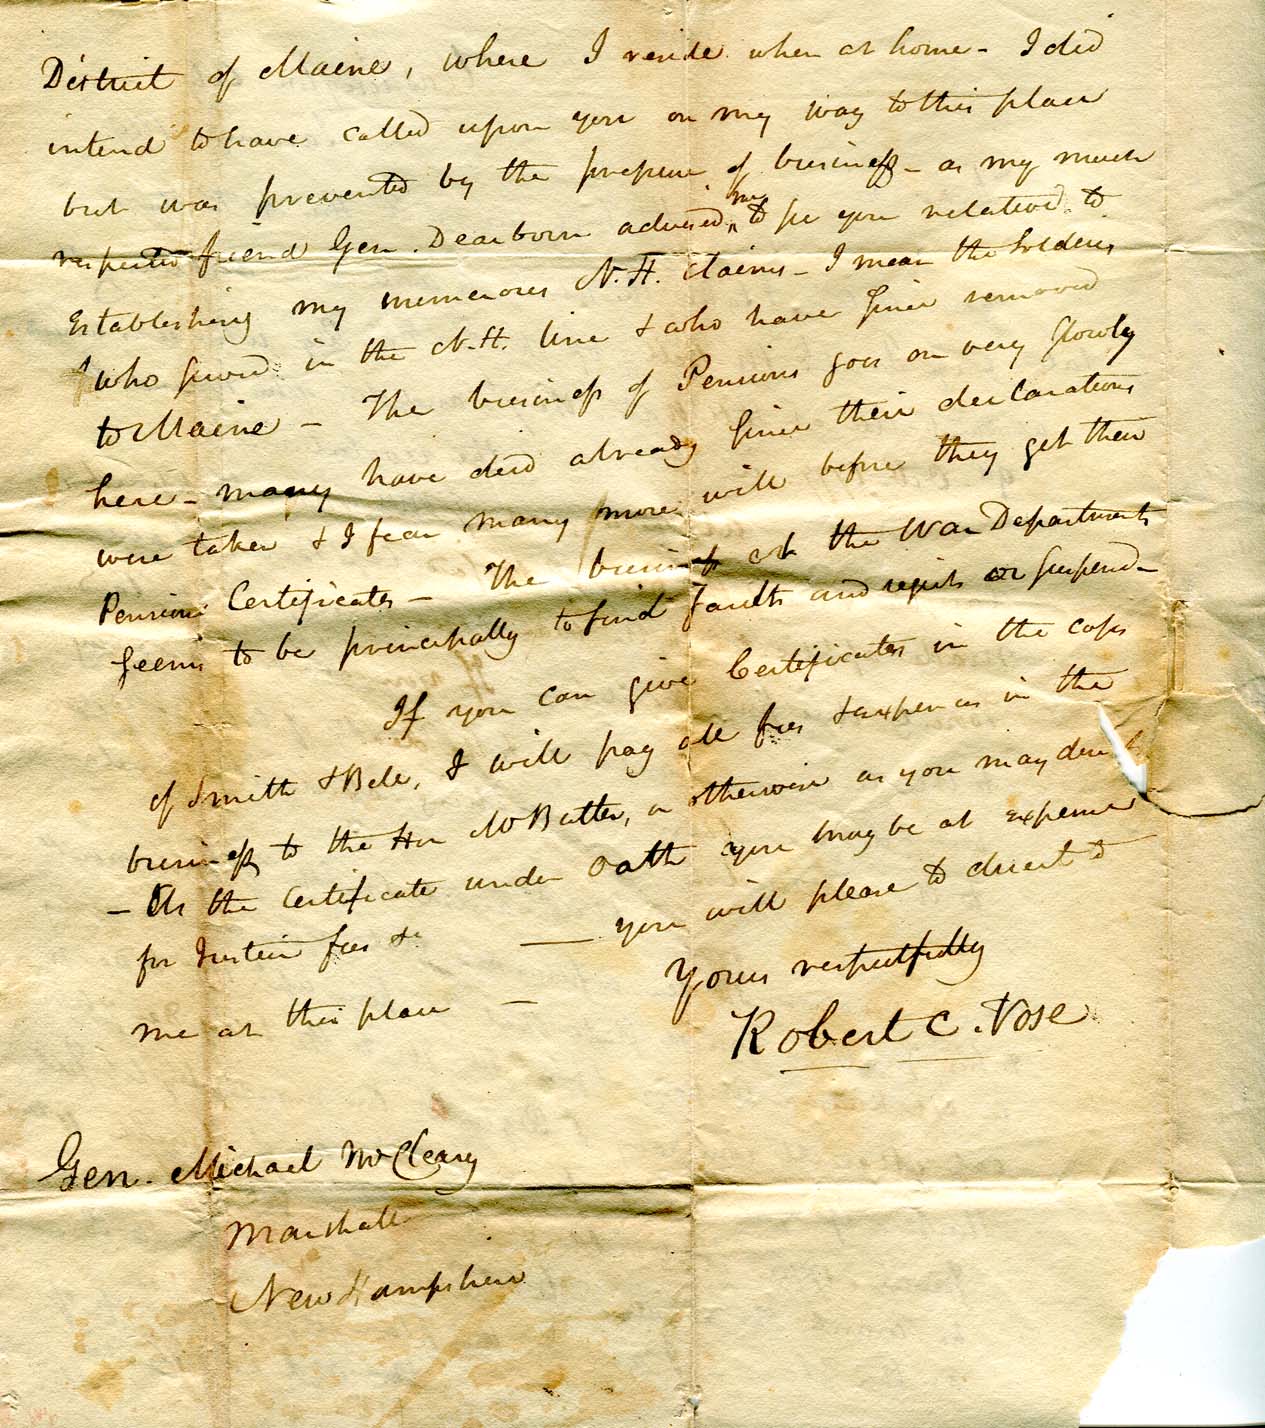 District of Maine, where I reside when at home - I did
intend to have called upon you on my way to this place
but was prevented by the pressure of business - as my much
respected friend Gen. Dearborn advised me to see you relative to
Establishing my numerous N. H. claims - I mean the Soldiers
who served in the N. H. line & who have since removed
to Maine - The business of Pensions goes on very slowly
here - many have died already since their declarations
were taken & I fear many more will before they get their
Pension Certificates - The business at the War Department
seems to be principally to find faults and reject or suspend -
If you can give Certificates in the case
of Smith & Bell, I will pay all fees & expences in the
business to the Hon Mr Butler, or otherwise as you may direct
- As the Certificate under Oath you may be at expense
for Justice fees &c — you will please to direct to
me at this place -
Yours respectfully
Robert C. Vose
Gen. Michael McCleary
Marshall
New Hampshire